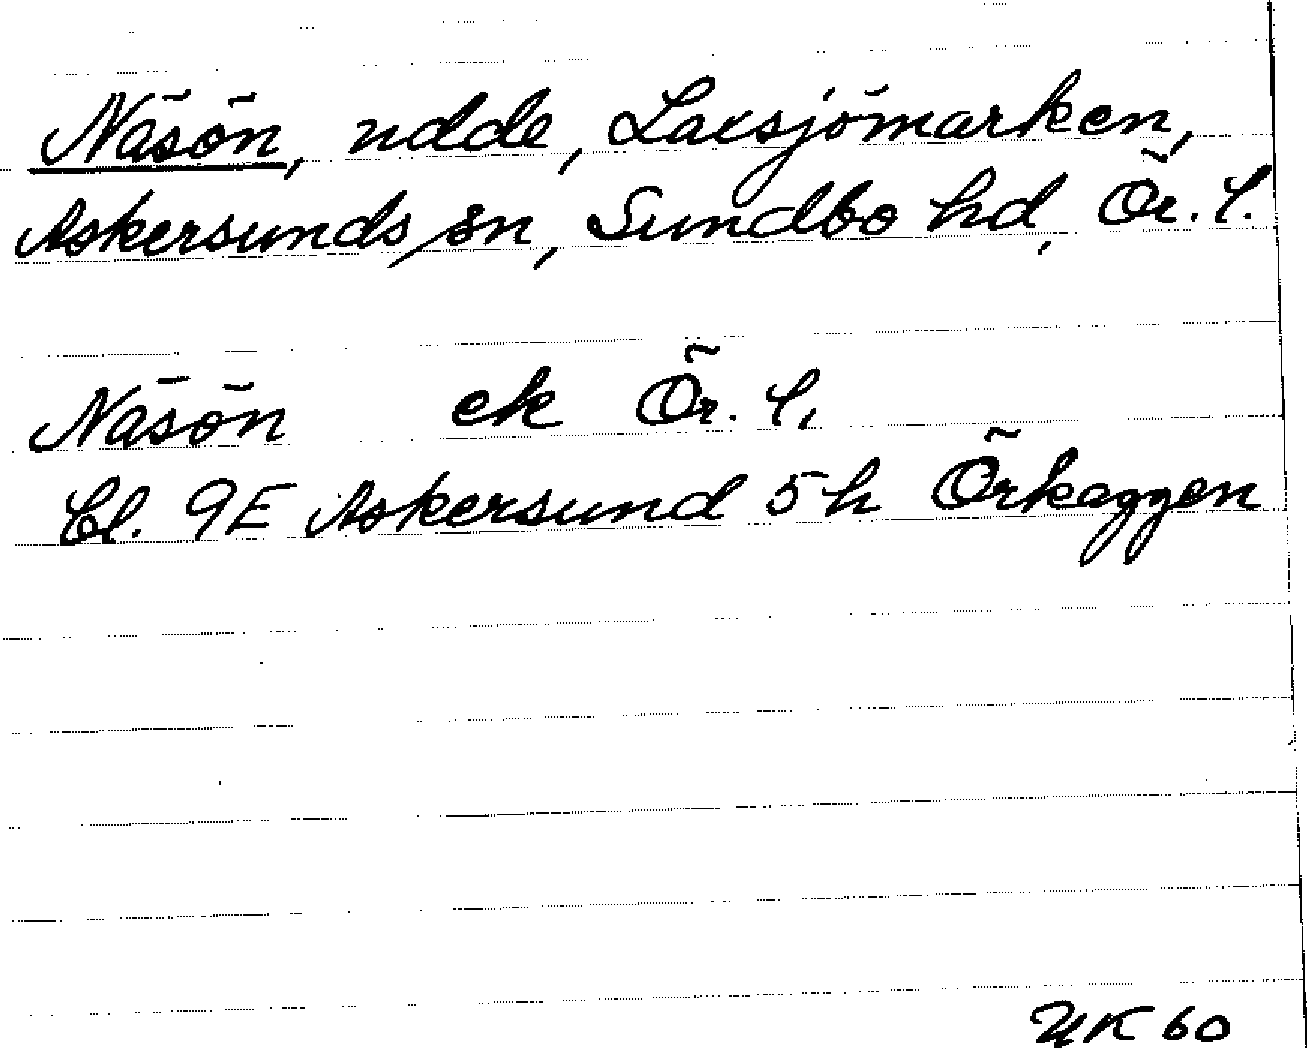 Näsön, udde, Laxsjömarken,
Askersunds sn, Sundbo hd, Ör. l.
Näsön ek Ör. l.
Bl. 9E Askersund 5h Örkaggen
UK 60